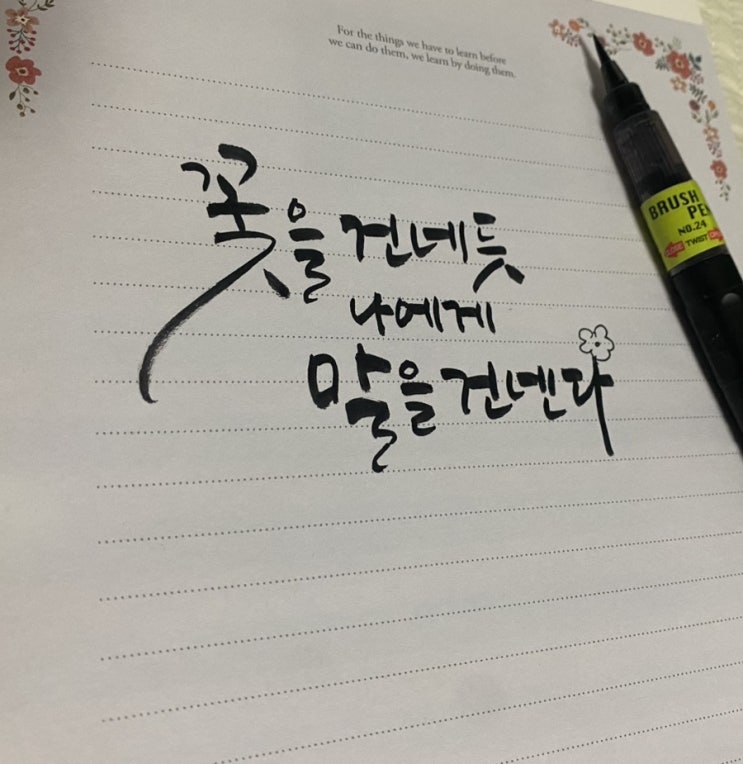 For the things we have to learn before
we can do them, we learn by doing them.
꽃을 건네듯
나에게
말을 건넨다
BRUSH
PEN
NO.24
TWIST